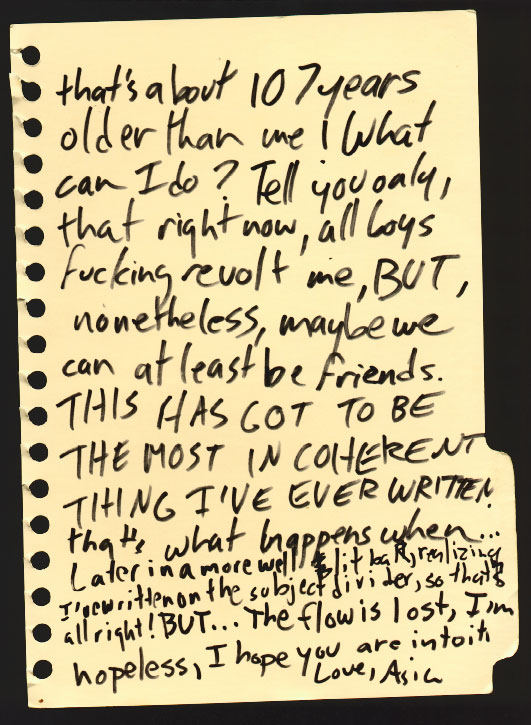 that's about 107 years
older than me! What
can I do? Tell you only,
that right now, all boys
fucking revolt me, BUT,
nonetheless, maybe we
can at least be friends.
THIS HAS GOT TO BE
THE MOST INCOHERENT
THING I'VE EVER WRITTEN
that's what happens when...
Later in a more well lit back, realizing
I've written on the subject divider, so that's
all right! BUT... The flow is lost, I'm
hopeless, I hope you are into it
Love, Asia